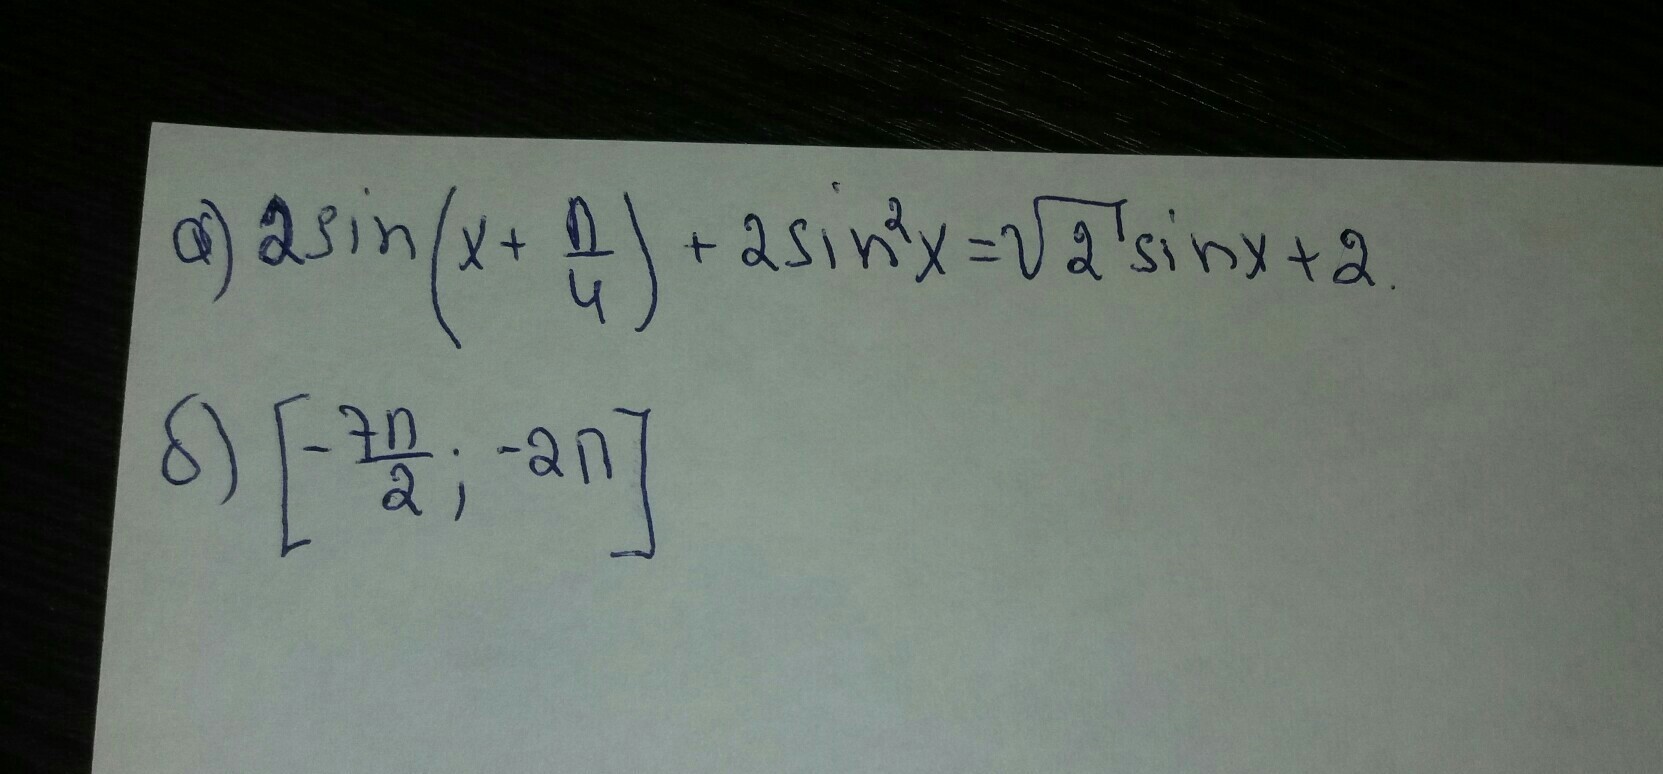 а) 2sin(x + π/4) + 2sin²x = √2 sinx + 2.
б) [-7π/2; -2π]